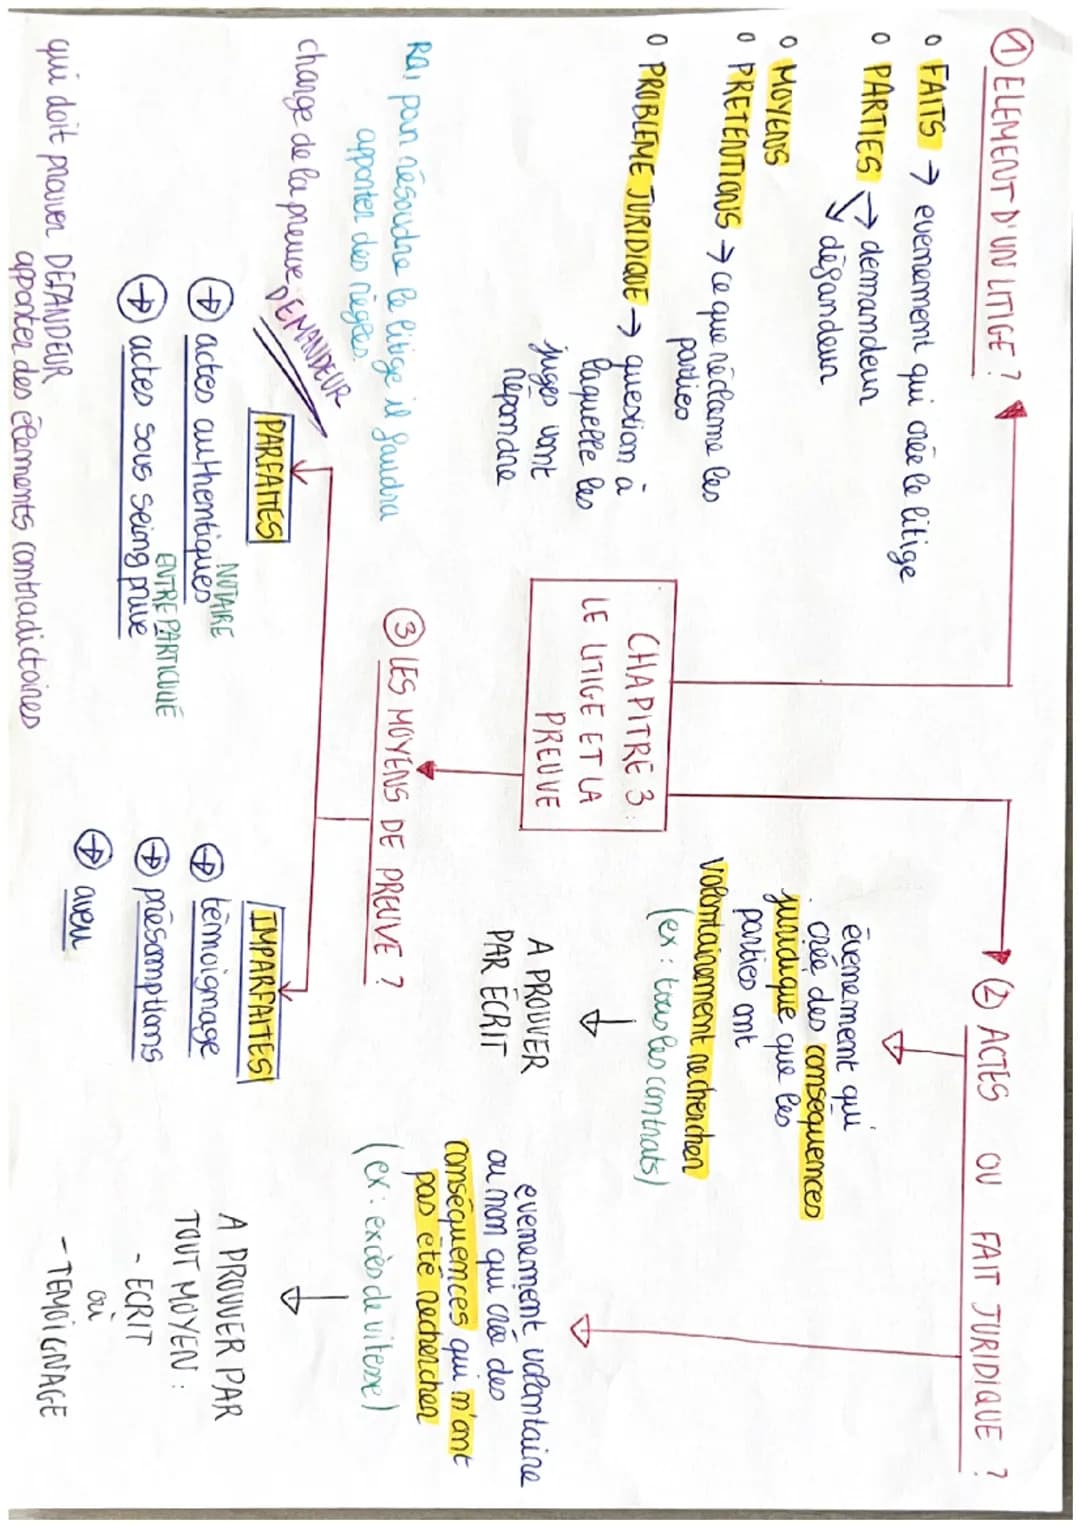 CHAPITRE 3 :
LE LITIGE ET LA
PREUVE
① ELEMENT D'UN LITIGE ?
o FAITS → evenement qui crée le litige
o PARTIES → demandeur
↘ défandeur
o MOYENS
o PRETENTIONS → ce que réclame les
parties
o PROBLEME JURIDIQUE → question à
laquelle les
juges vont
répondre
② ACTES OU FAIT JURIDIQUE ?
évènement qui
crée des consequences
juridique que les
parties ont
volontairement rechercher
(ex : tous les contrats)
A PROUVER
PAR ECRIT
evenement volontaire
ou non qui créé des
conséquences qui n'ont
pas été rechercher
(ex : excès de vitesse)
A PROUVER PAR
TOUT MOYEN :
- ECRIT
ou
- TEMOIGNAGE
③ LES MOYENS DE PREUVE ?
Ra, pour résoudre le litige il faudra
apporter des règles.
charge de la preuve DEMANDEUR
PARFAITES
NOTAIRE
→ actes authentiques
ENTRE PARTICULIE
→ actes sous seing privé
IMPARFAITES
→ témoignage
→ présomptions
→ aveu
qui doit prouver DEFANDEUR
apporter des élements contradictoires